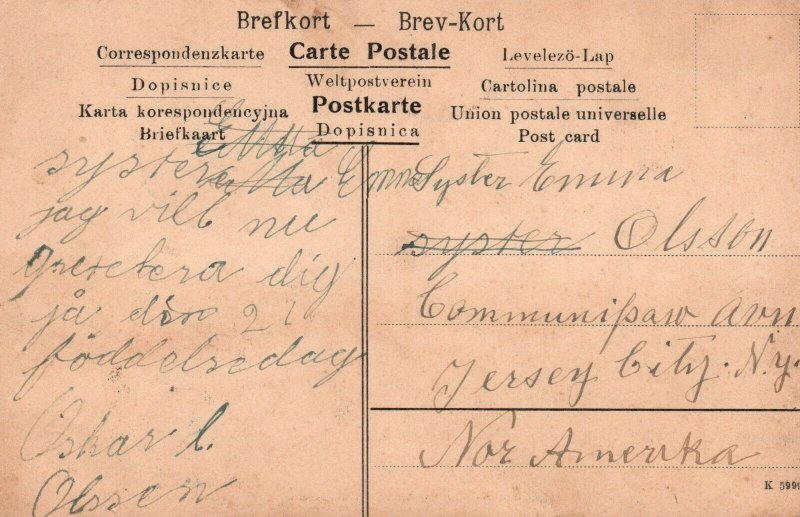 Brefkort — Brev-Kort
Correspondenzkarte Carte Postale Levelezö-Lap
Dopisnice Weltpostverein Cartolina postale
Karta korespondencyjna Postkarte Union postale universelle
Briefkaart Dopisnica Post card
Emma
syster Emma
jag vill nu
gratulera dig
på din 21
föddelsedag
Oskar L.
Olssen
Syster Emma
syster Olsson
Communipaw Avn
Jersey City. N.y.
Nor Amerika
K 5999